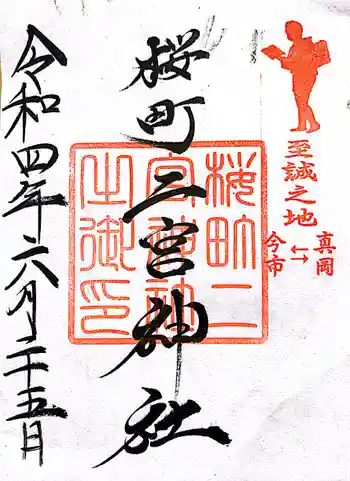 至誠之地
真岡
↔
今市
桜町二宮神社
桜町二
宮神社
之御印
令和四年六月二十五日